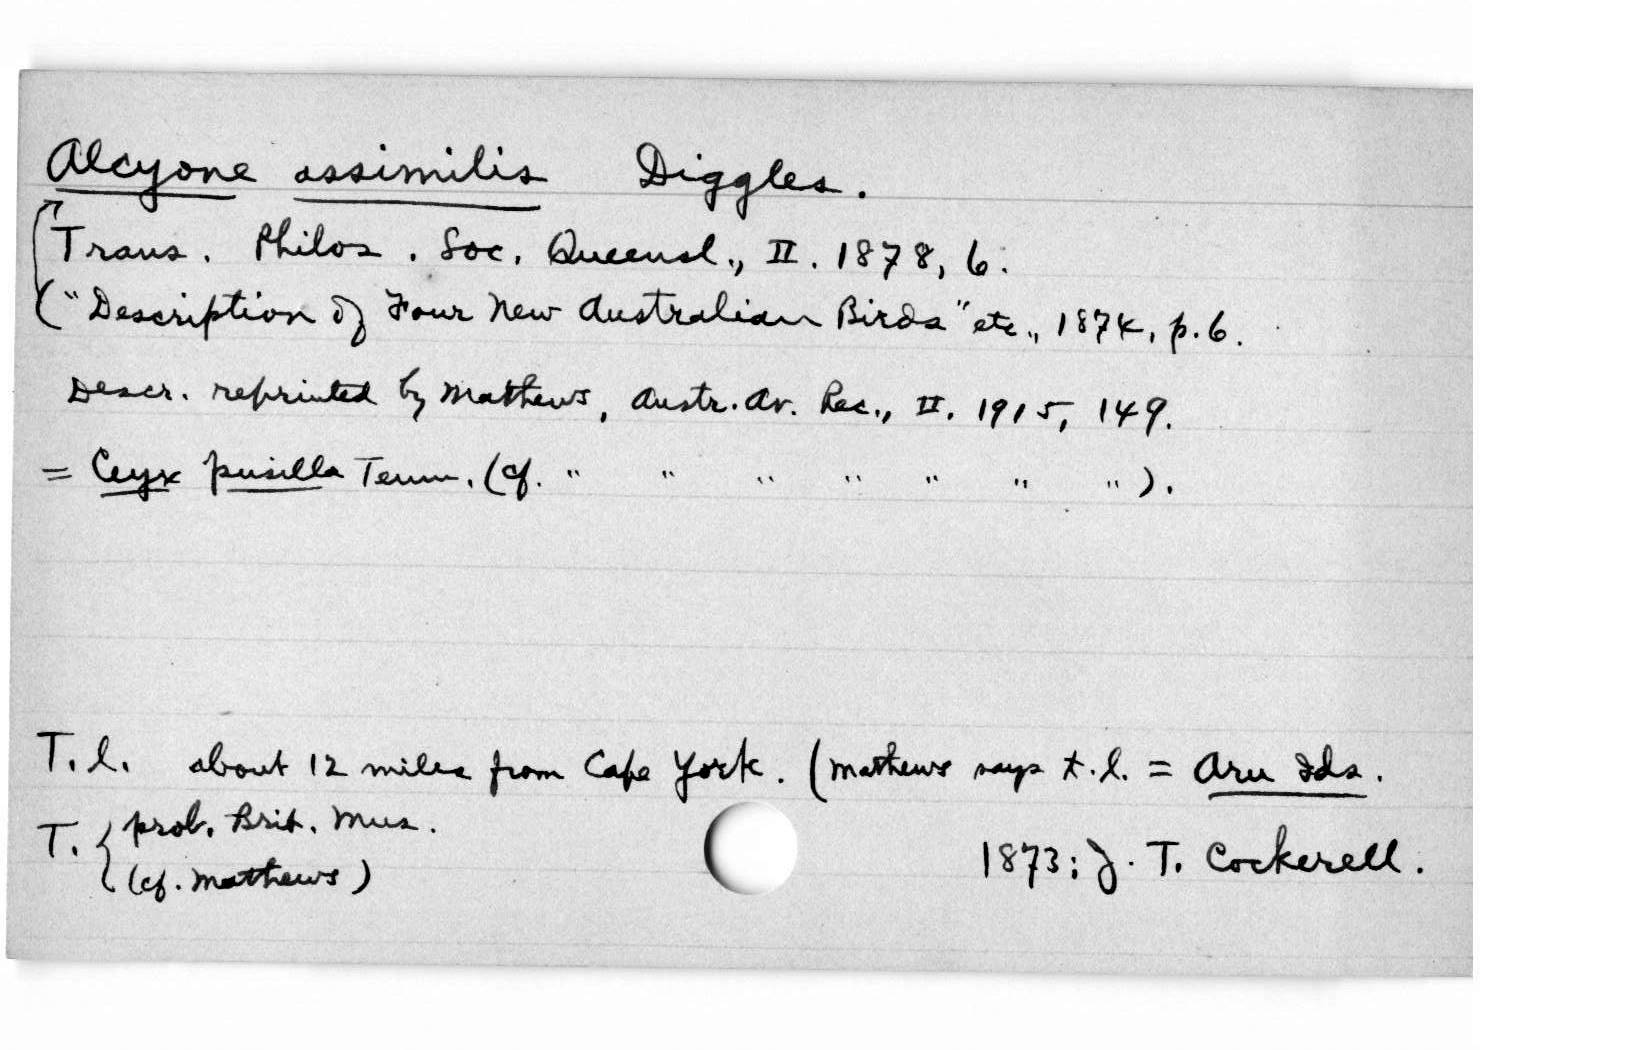 Alcyone assimilis Diggles.
Trans. Philos. Soc. Queensl., II. 1878, 6.
("Description of Four New Australian Birds" etc., 1874, p.6.
Descr. reprinted by Mathews, Austr. Av. Rec., II. 1915, 149.
= Ceyx pusilla Temm. (cf. " " " " " " ").
T.l. about 12 miles from Cape York. (Mathews says t.l. = Aru Ids.
T. { prob. Brit. Mus.
(cf. Mathews)
1873; J. T. Cockerell.